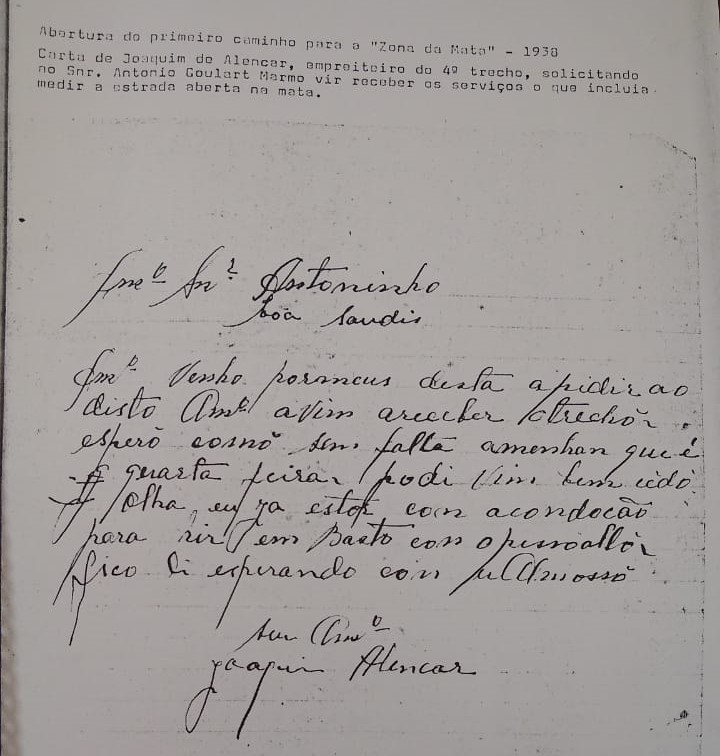 Abertura do primeiro caminho para a "Zona da Mata" - 1938
Carta de Joaquim de Alencar, empreiteiro do 4º trecho, solicitando
ao Snr. Antonio Goulart Marmo vir receber os serviços o que incluia
medir a estrada aberta na mata.
Ilmº Snr Antoninho
boa saudis
Amº Venho pormeus desta apidir ao
disto Amº avim areceber otrechor.
esperô sem falta amenhan que é
quarta feira podi vim bem cedo
olha, eu ja estor com acondocão
para com opessoallor
fico li esperando com uAlmosso
seu Amº
Joaquin Alencar